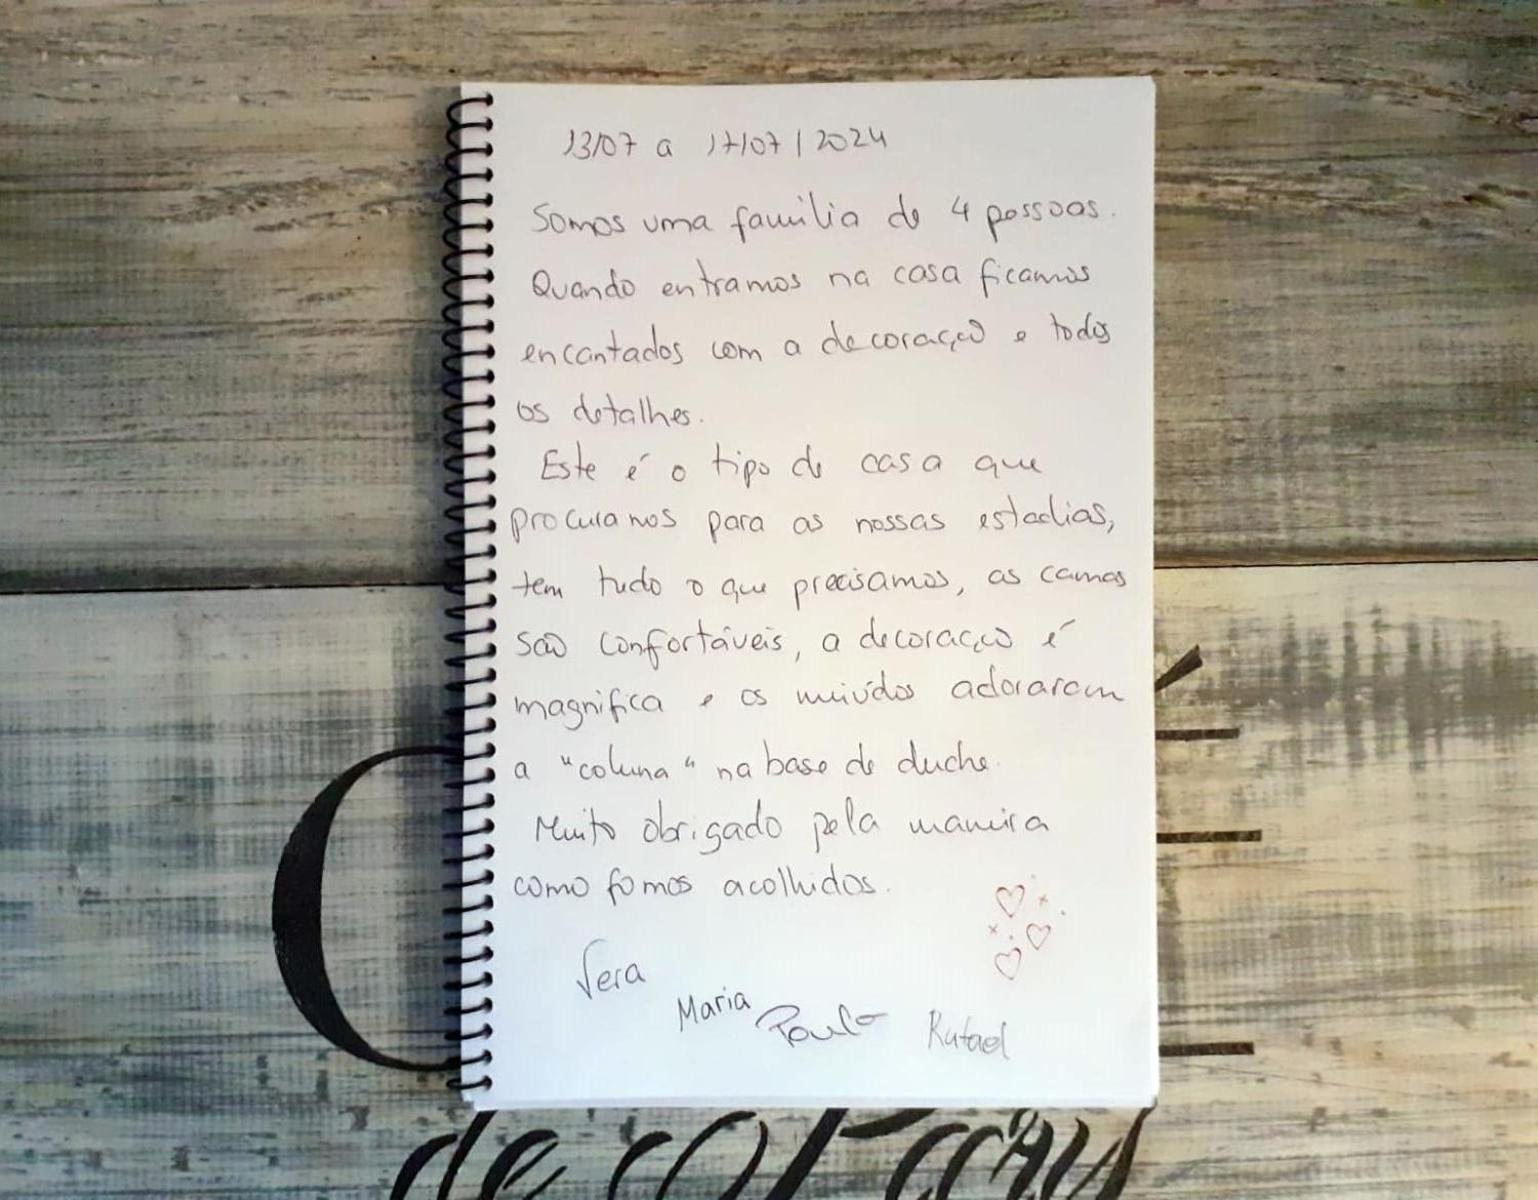 13/07 a 17/07/2024
Somos uma família de 4 pessoas.
Quando entramos na casa ficamos
encantados com a decoração e todos
os detalhes.
Este é o tipo de casa que
procuramos para as nossas estadias,
tem tudo o que precisamos, as camas
são confortáveis, a decoração é
magnífica e os miúdos adoraram
a "coluna" na base de duche.
Muito obrigado pela maneira
como fomos acolhidos.
Vera
Maria
Paulo
Rafael
de